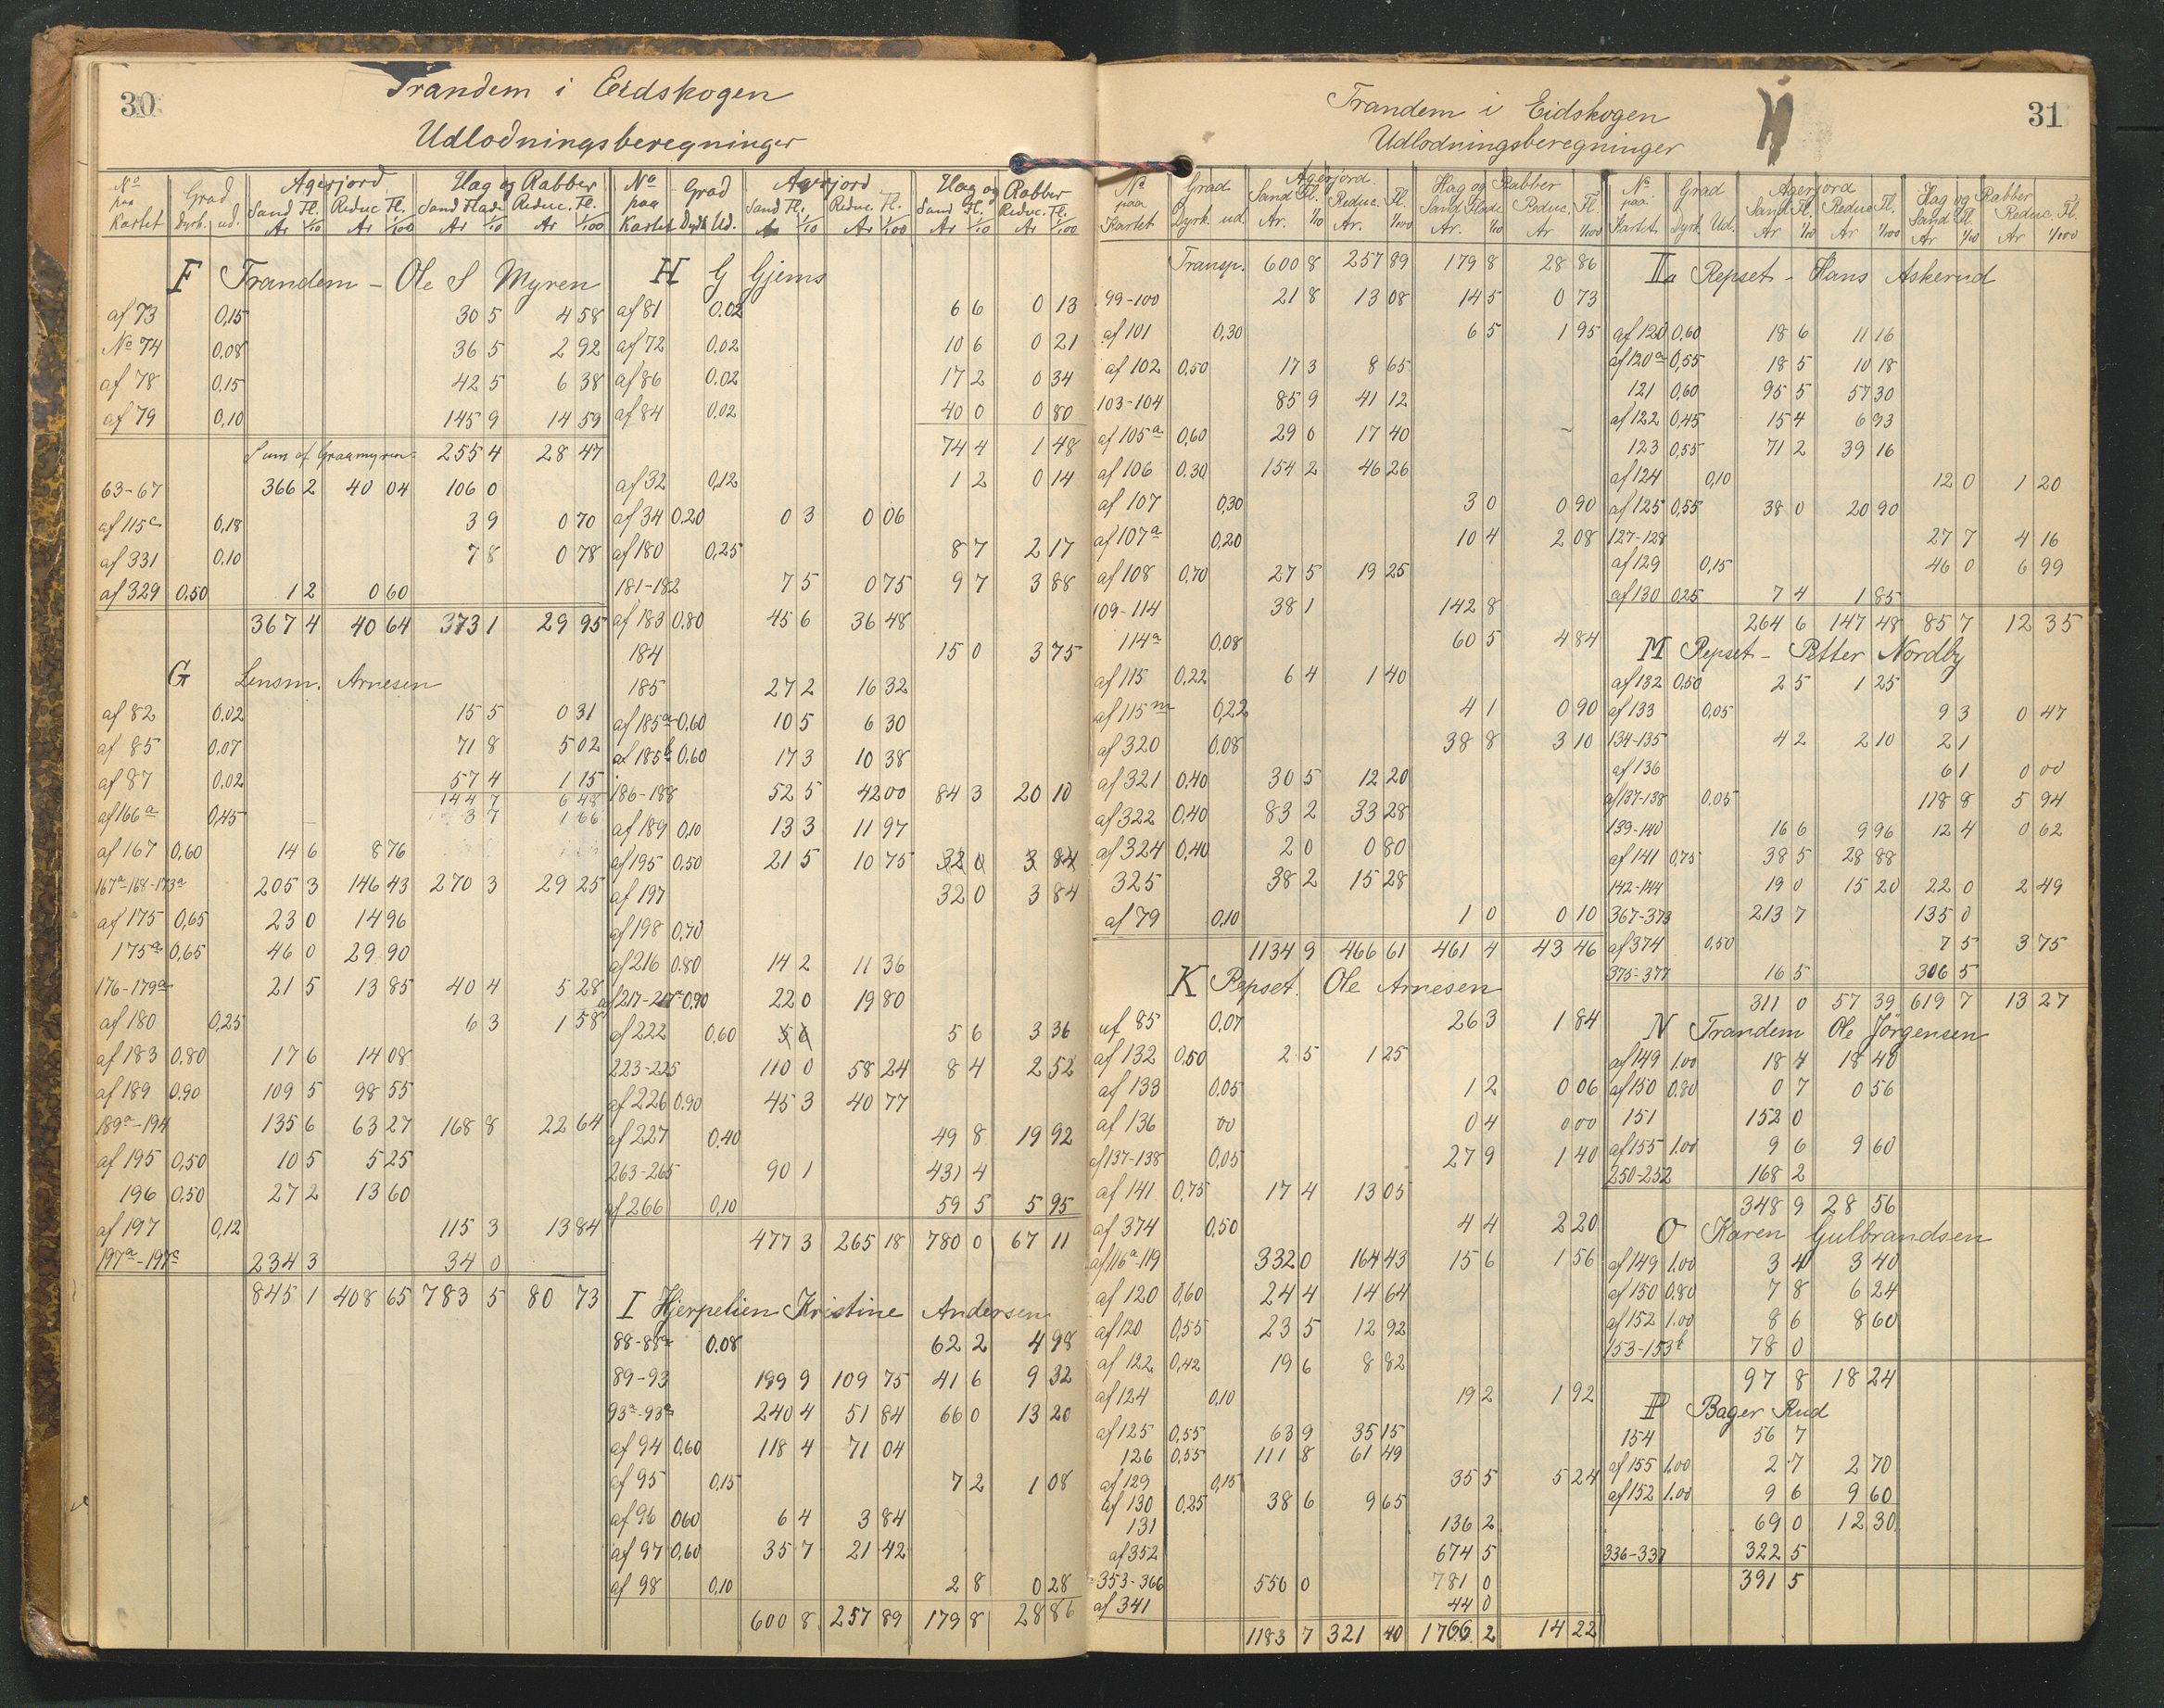 30
Trandem i Eidskogen
Udlodningsberegninger
No paa Kartet Grad Dyrk. ud. Agerjord Sand Fl. Ar 1/10 Reduc. Fl. Ar 1/100 Hag og Rabber Sand Flade Ar 1/10 Reduc. Fl. Ar 1/100
F Trandem - Ole S Myren
af 73 0,15 30 5 4 58
No 74 0,08 36 5 2 92
af 78 0,15 42 5 6 38
af 79 0,10 145 9 14 59
Sum af Graamyren 255 4 28 47
63-67 366 2 40 04 106 0
af 115c 0,18 3 9 0 70
af 331 0,10 7 8 0 78
af 329 0,50 1 2 0 60
367 4 40 64 373 1 29 95
G Lensm. Arnesen
af 82 0,02 15 5 0 31
af 85 0,07 71 8 5 02
af 87 0,02 57 4 1 15
144 7 6 48
af 166a 0,45 3 7 1 66
af 167 0,60 14 6 8 76
167a-168-173a 205 3 146 43 270 3 29 25
af 175 0,65 23 0 14 96
175a 0,65 46 0 29 90
176-179a 21 5 13 85 40 4 5 28
af 180 0,25 6 3 1 58
af 183 0,80 17 6 14 08
af 189 0,90 109 5 98 55
189a-194 135 6 63 27 168 8 22 64
af 195 0,50 10 5 5 25
196 0,50 27 2 13 60
af 197 0,12 115 3 13 84
197a-197c 234 3 34 0
845 1 408 65 783 5 80 73
No paa Kartet Grad Dyrk Ud. Agerjord Sand Fl. Ar 1/10 Reduc. Fl. Ar 1/100 Hag og Rabber Sand Fl. Ar 1/10 Reduc. Fl. Ar 1/100
H G Gjems
af 81 0.02 6 6 0 13
af 72 0,02 10 6 0 21
af 86 0.02 17 2 0 34
af 84 0,02 40 0 0 80
74 4 1 48
af 32 0,12 1 2 0 14
af 34 0.20 0 3 0 06
af 180 0,25 8 7 2 17
181-182 7 5 0 75 9 7 3 88
af 183 0.80 45 6 36 48
184 15 0 3 75
185 27 2 16 32
af 185a 0,60 10 5 6 30
af 185b 0,60 17 3 10 38
186-188 52 5 42 00 84 3 20 10
af 189 0,10 13 3 11 97
af 195 0,50 21 5 10 75 32 0 3 84
af 197 32 0 3 84
af 198 0,70
af 216 0.80 14 2 11 36
af 217-217a 0,90 22 0 19 80
af 222 0,60 5 6 5 6 3 36
223-225 110 0 58 24 8 4 2 52
af 226 0.90 45 3 40 77
af 227 0,40 49 8 19 92
263-265 90 1 431 4
af 266 0,10 59 5 5 95
477 3 265 18 780 0 67 11
I Hjerpelien Kristine Andersen
88-88a 0.08 62 2 4 98
89-93 199 9 109 75 41 6 9 32
93a-93a 240 4 51 84 66 0 13 20
af 94 0,60 118 4 71 04
af 95 0,15 7 2 1 08
af 96 0,60 6 4 3 84
af 97 0,60 35 7 21 42
af 98 0,10 2 8 0 28
600 8 257 89 179 8 28 86
31
Trandem i Eidskogen
Udlodningsberegninger
No paa Kartet Grad Dyrk. ud. Agerjord Sand Fl. Ar. 1/10 Reduc. Fl. Ar. 1/100 Hag og Rabber Sand Flade Ar. 1/10 Reduc. Fl. Ar 1/100
Transp. 600 8 257 89 179 8 28 86
99-100 21 8 13 08 14 5 0 73
af 101 0,30 6 5 1 95
af 102 0,50 17 3 8 65
103-104 85 9 41 12
af 105a 0,60 29 0 17 40
af 106 0.30 154 2 46 26
af 107 0,30 3 0 0 90
af 107a 0,20 10 4 2 08
af 108 0,70 27 5 19 25
109-114 38 1 142 8
114a 0,08 60 5 4 84
af 115 0,22 6 4 1 40
af 115m 0,22 4 1 0 90
af 320 0,08 38 8 3 10
af 321 0,40 30 5 12 20
af 322 0,40 83 2 33 28
af 324 0,40 2 0 0 80
325 38 2 15 28
af 79 0,10 1 0 0 10
1134 9 466 61 461 4 43 46
K Repset. Ole Arnesen
af 85 0,07 26 3 1 84
af 132 0,50 2 5 1 25
af 133 0,05 1 2 0 06
af 136 00 0 4 0 00
af 137-138 0,05 27 9 1 40
af 141 0,75 17 4 13 05
af 374 0,50 4 4 2 20
af 116a-119 332 0 164 43 15 6 1 56
af 120 0,60 24 4 14 64
af 120 0,55 23 5 12 92
af 122 0,42 19 6 8 82
af 124 0,10 19 2 1 92
af 125 0,55 63 9 35 15
126 0,55 111 8 61 49
af 129 0,15 35 5 5 24
af 130 0,25 38 6 9 65
131 136 2
af 352 674 5
353-366 550 0 781 0
af 341 44 0
1183 7 321 40 1766 2 14 22
No paa Kartet Grad Dyrk Ud. Agerjord Sand Fl. Ar 1/10 Reduc Fl. Ar 1/100 Hag og Rabber Sand Fl. Ar 1/10 Reduc. Fl. Ar 1/100
L Repset - Hans Askerud
af 120 0,60 18 6 11 16
af 120a 0,55 18 5 10 18
121 0,60 95 5 57 30
af 122 0,45 15 4 6 93
123 0,55 71 2 39 16
af 124 0,10 12 0 1 20
af 125 0,55 38 0 20 90
127-128 27 7 4 16
af 129 0,15 46 0 6 99
af 130 0,25 7 4 1 85
264 6 147 48 85 7 12 35
M Repset - Petter Nordby
af 132 0,50 2 5 1 25
af 133 0,05 9 3 0 47
134-135 4 2 2 10 2 1
af 136 6 1 0 00
af 137-138 0,05 118 8 5 94
139-140 16 6 9 96 12 4 0 62
af 141 0,75 38 5 28 88
142-144 19 0 15 20 22 0 2 49
367-373 213 7 135 0
af 374 0,50 7 5 3 75
375-377 16 5 306 5
311 0 57 39 619 7 13 27
N Trandem Ole Jørgensen
af 149 1.00 18 4 18 40
af 150 0.80 0 7 0 56
151 152 0
af 155 1.00 9 6 9 60
250-252 168 2
348 9 28 56
O Karen Gulbrandsen
af 149 1.00 3 4 3 40
af 150 0.80 7 8 6 24
af 152 1.00 8 6 8 60
153-153b 78 0
97 8 18 24
P Bager Rud
154 56 7
af 155 1.00 2 7 2 70
af 152 1.00 9 6 9 60
69 0 12 30
336-337 322 5
391 5